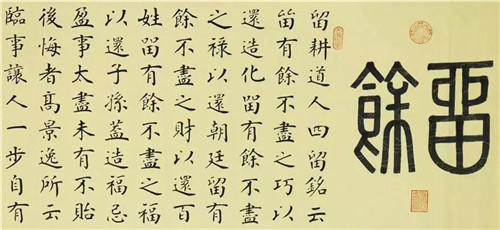 留餘
留耕道人四留銘云
留有餘不盡之巧以
還造化留有餘不盡
之祿以還朝廷留有
餘不盡之財以還百
姓留有餘不盡之福
以還子孫蓋造福忌
盈事太盡未有不貽
後悔者高景逸所云
臨事讓人一步自有